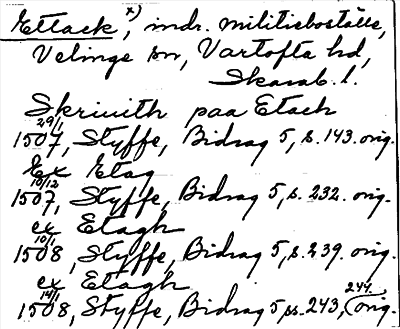 Ettack x), indr. militieboställe,
Velinge sn, Vartofta hd,
Skarab. l.
Skriuith paa Etach
29/1 1507, Styffe, Bidrag 5, s. 143. orig.
Ex Etag
10/12 1507, Styffe, Bidrag 5, s. 232. orig.
ex Etagh
10/1 1508, Styffe, Bidrag 5, s. 239. orig.
ex Etagh
14/1 1508, Styffe, Bidrag 5, ss. 243, 244. orig.